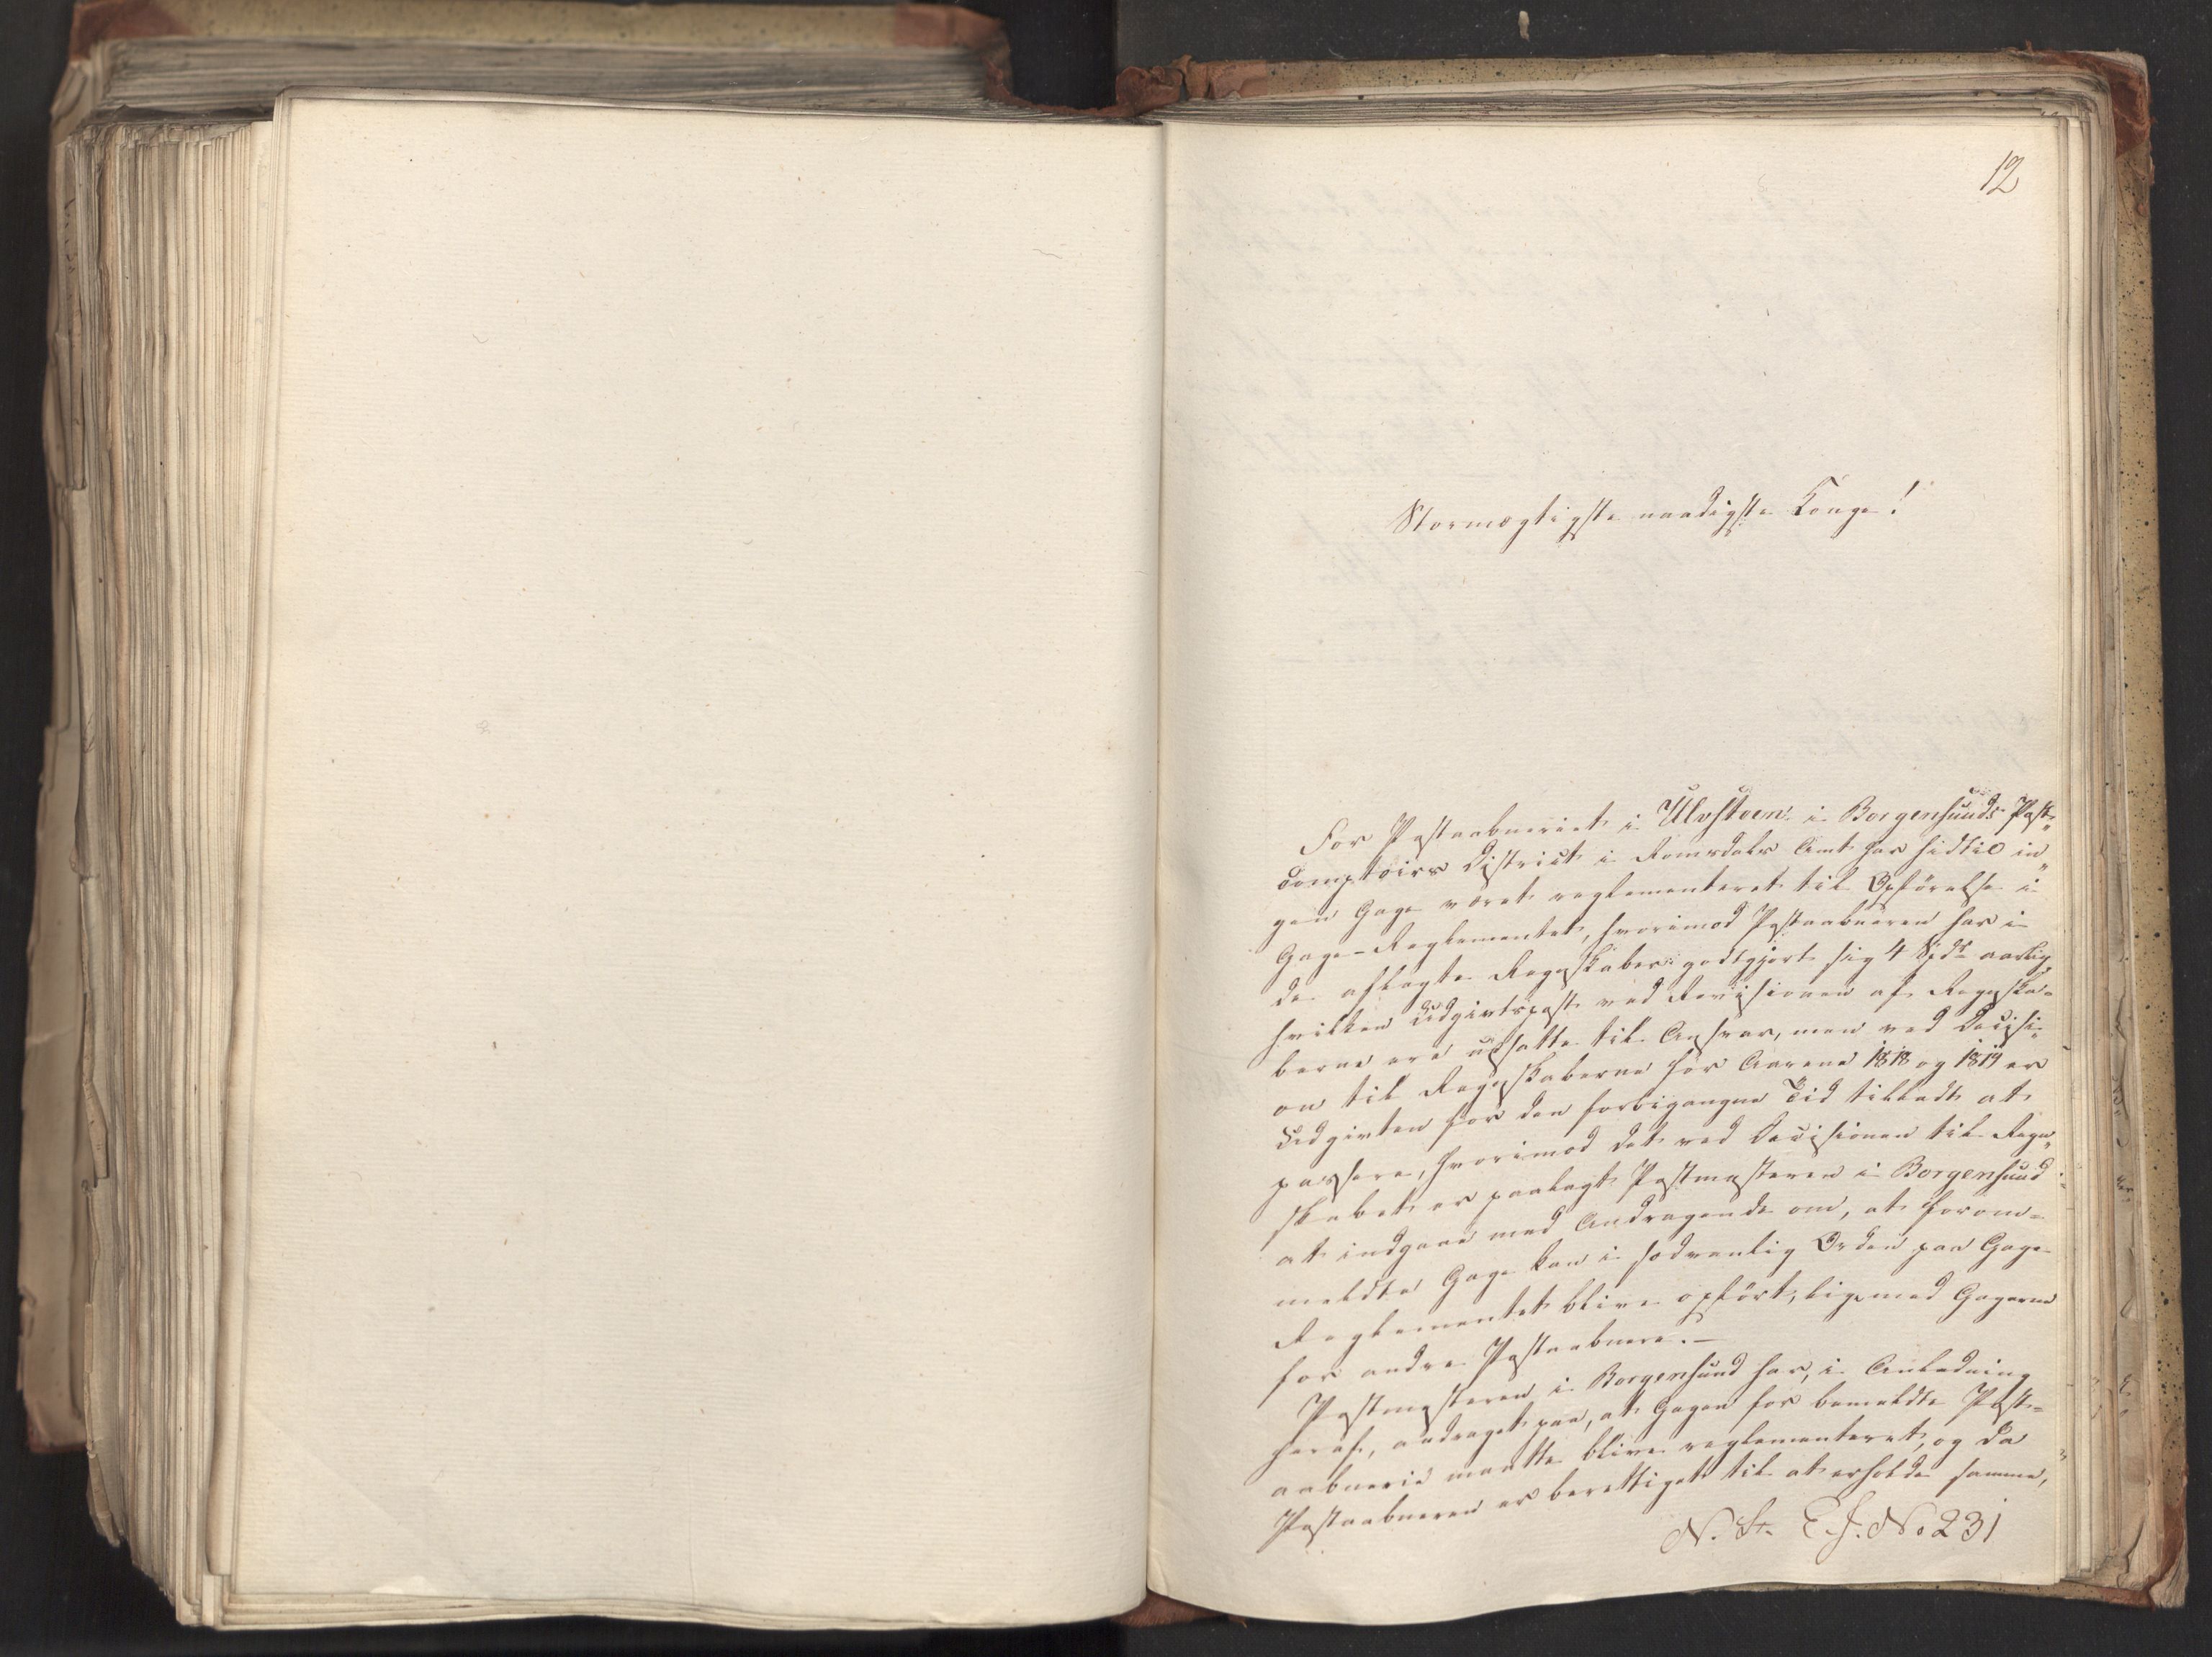 12
Stormægtigste naadigste Konge!
For Postaabneriet i Ulvsteen i Borgensunds Post-
Comptoirs District i Romsdals Amt har hidtil in-
gen Gage været reglementeret til Opførelse i
Gage-Reglementet, hvorimod Postaabneren har i
de aflagte Regnskaber godtgjort sig 4 Spd aarlig
hvilken Udgiftspost ved Revisionen af Regnska-
berne ere udsatte til Ansvar, men ved Decisi-
on til Regnskaberne for Aarene 1818 og 1819 er
Udgivten for den forbigangne Tid tilladt at
passere, hvorimod det ved Decisionen til Regn-
skabet er paalagt Postmesteren i Borgensund
at indgaae med Andragende om, at forom-
meldte Gage kan i sædvanlig Orden paa Gage-
Reglementet blive opført, ligemed Gagerne
for andre Postaabnere. —
Postmesteren i Borgensund har, i Anledning
heraf, andraget paa, at Gagen for bemeldte Post-
aabnerie maatte blive reglementeret, og da
Postaabneren er berettiget til at erholde samme,
N. St. E. J. No 231